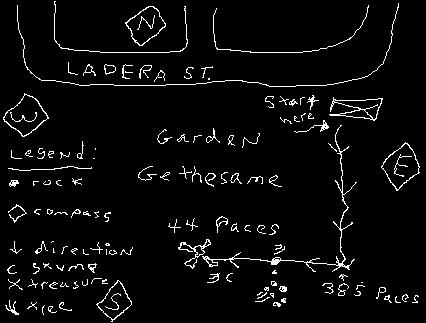 N
LADERA ST.
W
Start
here
Garden
Legend:
E
rock
Gethesame
compass
44 Paces
direction
C stump
X treasure
385 Paces
C
S
tree